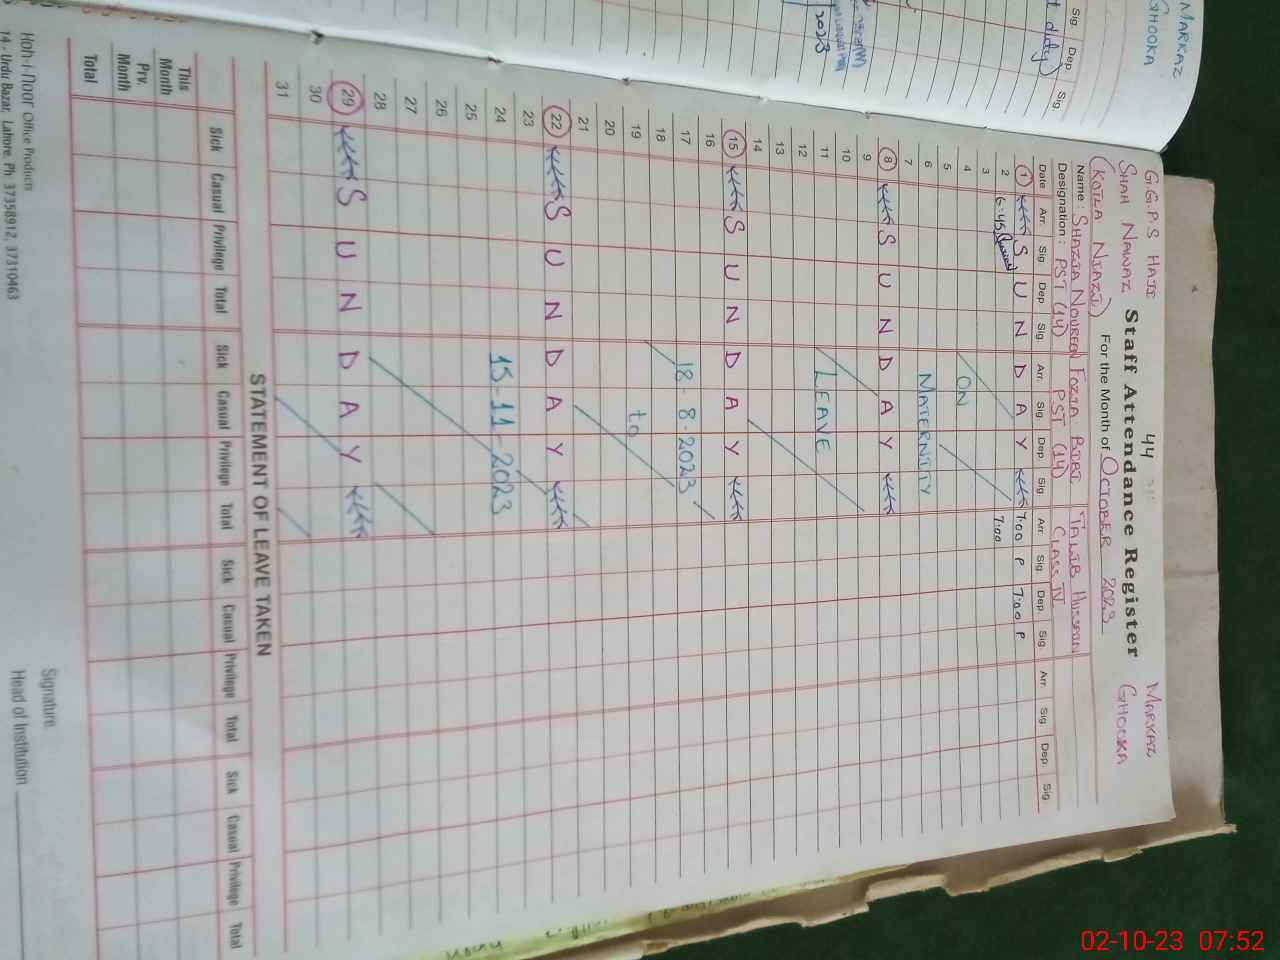 MARKAZ
GHOOKA
Sig. Dep Sig.
2023
G.G.P.S HAJI
SHAH NAWAZ
(KOTLA NIAZI)
44
Staff Attendance Register
MARKAZ
GHOOKA
For the Month of OCTOBER 2023
Name: SHAZIA NOUREEN FOZIA BIBI TALIB HUSSAIN
Designation: PST (14) PST (14) CLASS IV
Date Arr. Sig. Dep Sig. Arr. Sig. Dep Sig. Arr. Sig. Dep. Sig. Arr. Sig. Dep. Sig.
1 S U N D A Y 7:00 P 7:00 P
2 6:45 7:00
3
4 ON
5
6 MATERNITY
7
8 S U N D A Y
9
10
11 LEAVE
12
13
14
15 S U N D A Y
16
17 18-8-2023
18
19 to
20
21
22 S U N D A Y
23
24 15-11-2023
25
26
27
28
29 S U N D A Y
30
31
STATEMENT OF LEAVE TAKEN
Sick Casual Privilege Total Sick Casual Privilege Total Sick Casual Privilege Total Sick Casual Privilege Total
This Month
Prv. Month
Total
Signature
Head of Institution
Koh-i-Noor Office Products
14 - Urdu Bazar, Lahore. Ph: 37358912, 37310463
02-10-23 07:52